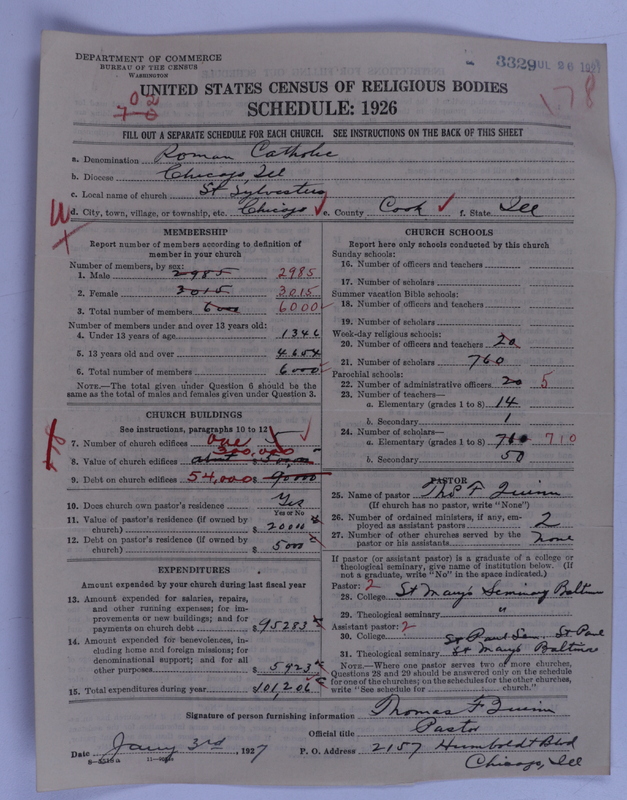 DEPARTMENT OF COMMERCE
BUREAU OF THE CENSUS
WASHINGTON
3329 JUL 26
UNITED STATES CENSUS OF RELIGIOUS BODIES
SCHEDULE: 1926
178
FILL OUT A SEPARATE SCHEDULE FOR EACH CHURCH. SEE INSTRUCTIONS ON THE BACK OF THIS SHEET
a. Denomination Roman Catholic
b. Diocese Chicago, Ill
c. Local name of church St Sylvesters
d. City, town, village, or township, etc. Chicago e. County Cook f. State Ill
MEMBERSHIP
Report number of members according to definition of
member in your church
Number of members, by sex:
1. Male 2985 2985
2. Female 3015 3015
3. Total number of members 6000 6000
Number of members under and over 13 years old:
4. Under 13 years of age 1346
5. 13 years old and over 4654
6. Total number of members 6000
NOTE.—The total given under Question 6 should be the
same as the total of males and females given under Question 3.
CHURCH BUILDINGS
See instructions, paragraphs 10 to 12
7. Number of church edifices one 1
8. Value of church edifices about 300,000
9. Debt on church edifices 54,000 $ 90000
10. Does church own pastor's residence? Yes
Yes or No
11. Value of pastor's residence (if owned by
church) $ 20000
12. Debt on pastor's residence (if owned by
church) $ 5000
EXPENDITURES
Amount expended by your church during last fiscal year
13. Amount expended for salaries, repairs,
and other running expenses; for im-
provements or new buildings; and for
payments on church debt $ 95283
14. Amount expended for benevolences, in-
cluding home and foreign missions; for
denominational support; and for all
other purposes $ 5923
15. Total expenditures during year $ 101,206
CHURCH SCHOOLS
Report here only schools conducted by this church
Sunday schools:
16. Number of officers and teachers
17. Number of scholars
Summer vacation Bible schools:
18. Number of officers and teachers
19. Number of scholars
Week-day religious schools:
20. Number of officers and teachers 20
21. Number of scholars 760
Parochial schools:
22. Number of administrative officers 20 5
23. Number of teachers—
a. Elementary (grades 1 to 8) 14
b. Secondary 1
24. Number of scholars—
a. Elementary (grades 1 to 8) 710 710
b. Secondary 50
PASTOR
25. Name of pastor Thos F Quinn
(If church has no pastor, write "None")
26. Number of ordained ministers, if any, em-
ployed as assistant pastors 2
27. Number of other churches served by the
pastor or his assistants None
If pastor (or assistant pastor) is a graduate of a college or
theological seminary, give name of institution below. (If
not a graduate, write "No" in the space indicated.)
Pastor: 2
28. College St Mary's Seminary Baltimore
29. Theological seminary "
Assistant pastor: 2
30. College St Paul Sem. St Paul
31. Theological seminary St Mary's Baltimore
NOTE.—Where one pastor serves two or more churches,
Questions 28 and 29 should be answered only on the schedule
for one of the churches; on the schedules for the other churches,
write "See schedule for church."
Signature of person furnishing information Thomas F Quinn
Official title Pastor
Date Jany 3rd, 1927 P. O. Address 2157 Humboldt Blvd
Chicago, Ill